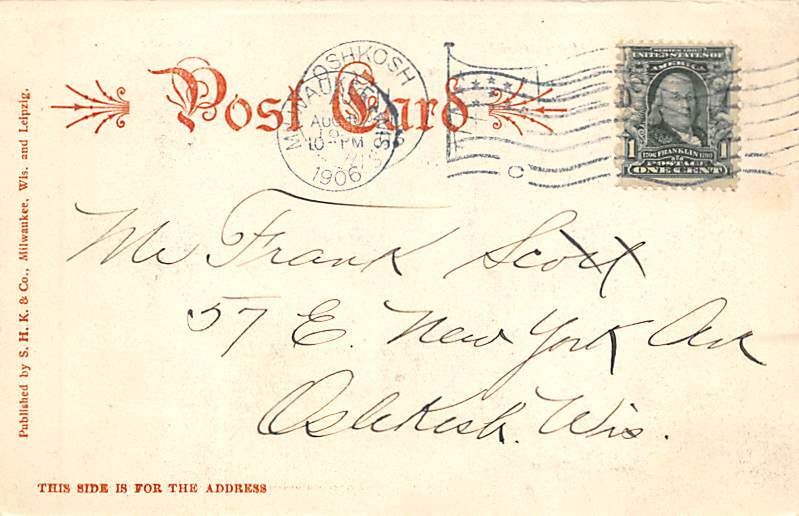 Post Card
OSHKOSH
MILWAUKEE, WIS.
AUG
10-PM
1906
C
SERIES 1902
UNITED STATES OF
AMERICA
1 1706 FRANKLIN 1790 1
POSTAGE
ONE CENT
Mr Frank Scott
57 E. New York Ave
Oshkosh. Wis.
Published by S. H. K. & Co., Milwaukee, Wis. and Leipzig.
THIS SIDE IS FOR THE ADDRESS